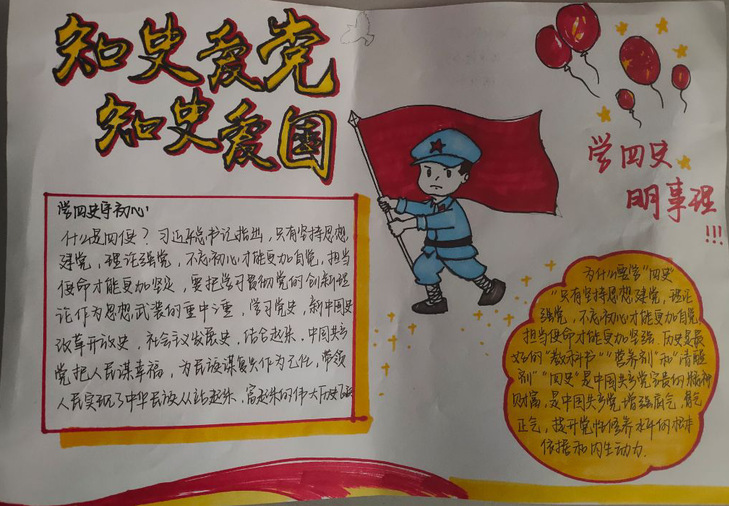 知史爱党
知史爱国
学四史守初心
什么是四史？习近平总书记指出，只有坚持思想
建党，理论强党，不忘初心才能更加自觉，担当
使命才能更加坚定，要把学习贯彻党的创新理
论作为思想武装的重中之重，学习党史，新中国史
改革开放史，社会主义发展史，结合起来，中国共产
党把人民谋幸福，为民族谋复兴作为己任，带领
人民实现了中华民族从站起来，富起来的伟大历史
学四史
明事理
!!!
为什么要学“四史”
“只有坚持思想建党，理论
强党，不忘初心才能更加自觉
担当使命才能更加坚强，历史是最
好的“教科书”“营养剂”和“清醒
剂”“四史”是中国共产党宝贵的精神
财富，是中国共产党增强底气，
正气，提升党性修养水平的根本
依据和内生动力.